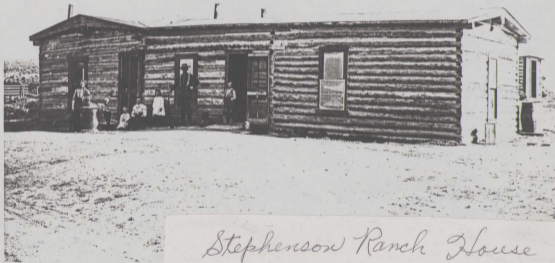 Stephenson Ranch House